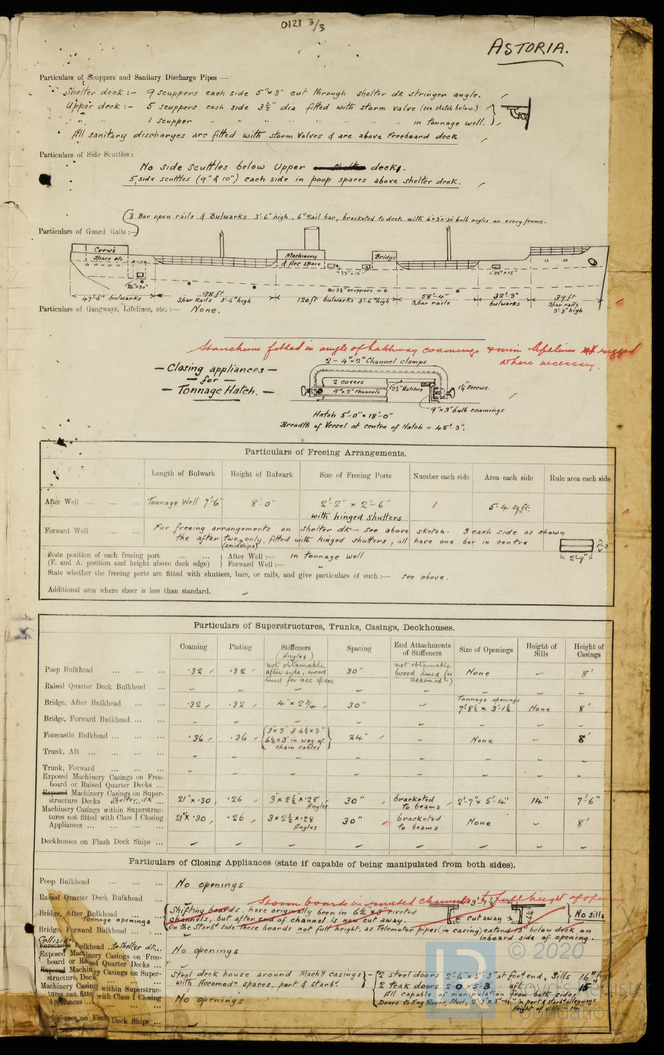 0121 3/3
ASTORIA.
Particulars of Scuppers and Sanitary Discharge Pipes —
Shelter deck :- 9 scuppers each side 5"x3" cut through shelter dk stringer angle.
Upper deck :- 5 scuppers each side 3½" dia fitted with storm valve (see sketch below.)
" " 1 scupper " " " " " in tonnage well.
All sanitary discharges are fitted with storm valves & are above Freeboard deck
Particulars of Side Scuttles:
No side scuttles below Upper deck.
5 side scuttles (9" & 10") each side in poop spaces above shelter deck.
(3 Bar open rails & Bulwarks 3'-6" high, 6" Rail bar, bracketed to deck with bulb angles on every frame.
Particulars of Guard Rails:—
Crews Space etc
Machinery & Acc space
Bridge
47'-6" bulwarks
98 ft 3 bar Rails 3'-6" high
120 ft bulwarks 3'-6" high
58'-4" 3 bar rails
32'-3" bulwarks
39 ft 3 bar rails 3'-3" high
Particulars of Gangways, Lifelines, etc.:— None.
Stanchions fitted in angle of hatchway coamings & wire lifelines rigged
where necessary.
— Closing appliances —
— for —
— Tonnage Hatch. —
2 - 4"x2" Channel clamps
2 covers
9"x2" channels
2½" Hatches
1¼" screws.
9"x3" bulb coamings
Hatch 5'-0" x 18'-0"
Breadth of Vessel at centre of Hatch = 45'-3".
Particulars of Freeing Arrangements.
Length of Bulwark Height of Bulwark Size of Freeing Ports Number each side Area each side Rule area each side
After Well ... ... ... Tonnage Well 7'-6" 8'-0" 2'-2" x 2'-6" 1 5.4 sq ft.
with hinged shutters
Forward Well ... ... For freeing arrangements on shelter dk — see above sketch. 3 each side as shown
the after two only, (amidships) fitted with hinged shutters, all have one bar in centre
2'-9"
State position of each freeing port ... ... ... After Well :— in tonnage well
(F. and A. position and height above deck edge) Forward Well :—
State whether the freeing ports are fitted with shutters, bars, or rails, and give particulars of such :— see above.
Additional area where sheer is less than standard.
Particulars of Superstructures, Trunks, Casings, Deckhouses.
Coaming Plating Stiffeners (Angles) Spacing End Attachments of Stiffeners Size of Openings Height of Sills Height of Casings
Poop Bulkhead ... ... ... .32 .32 not obtainable after side, wood lined for acc 30" not obtainable (wood lined for accomod.) None - 8'
Raised Quarter Deck Bulkhead ...
Bridge, After Bulkhead ... ... .32 .32 4" x 2¾ 30" - Tonnage openings 7'-8½ x 3'-1½ None 8'
Bridge, Forward Bulkhead ...
Forecastle Bulkhead ... ... .36 .36 3"x3" & 4½x3" 6½x3" in way of chain cables 24" - None 8'
Trunk, Aft ... ... ...
Trunk, Forward ... ... ...
Exposed Machinery Casings on Freeboard or Raised Quarter Decks ...
Machinery Casings on Superstructure Decks Shelter dk ... 21" x .30 .26 3" x 2½ x .28 Angles 30" bracketed to beams 2'-7" x 5'-4" 14" 7'-6"
Machinery Casings within Superstructures not fitted with Class 1 Closing Appliances ... 21" x .30 .26 3 x 2½ x .28 Angles 30" bracketed to beams None - 8'
Deckhouses on Flush Deck Ships ...
Particulars of Closing Appliances (state if capable of being manipulated from both sides).
Poop Bulkhead ... ... No openings
Raised Quarter Deck Bulkhead
Storm boards in riveted channels to full height of opening
Bridge, After Bulkhead ... Tonnage openings Shifting boards, have originally been in 6½ x 3" riveted
channels, but after end of channel is now cut away.
cut away No Sills
(On the Starbd side these boards not full height, as Telemotor pipes in casing) extend 3" below deck on
inboard side of opening.
Bridge, Forward Bulkhead ...
Collision Bulkhead to shelter dk... No openings
Exposed Machinery Casings on Freeboard or Raised Quarter Decks
Machinery Casings on Superstructure Decks Steel deck house around Machy casings with Accomodn spaces, port & starbd. 2 Steel doors 2'-6" x 5'-3" at ford end, Sills 16"
2 Teak doors 2'-0 x 5'-3 aft 15"
All capable of manipulation from both sides
Machinery Casings within Superstructures not fitted with Class 1 Closing Appliances No openings
Height of sills = 14"
Deckhouses on Flush Deck Ships ...
© 2020
Lloyd's Register
Foundation